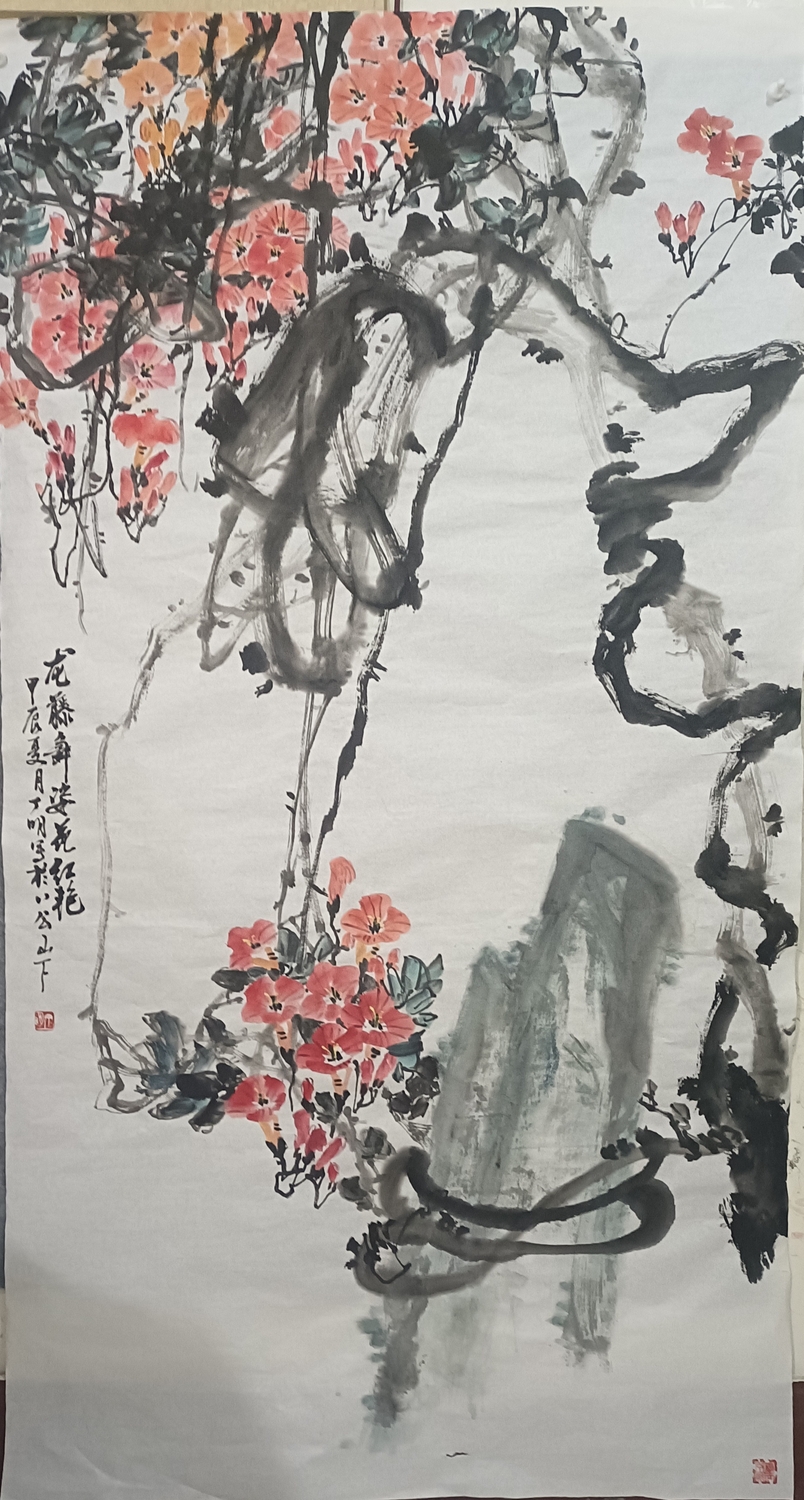 龙藤舞姿花红艳
甲辰夏月丁明写于八公山下